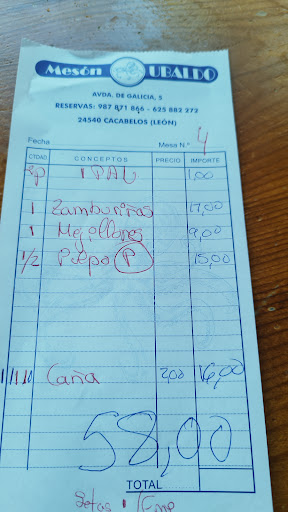 Mesón UBALDO
AVDA. DE GALICIA, 5
RESERVAS: 987 871 866 - 625 882 272
24540 CACABELOS (LEÓN)
Fecha Mesa N.º 4
CTDAD CONCEPTOS PRECIO IMPORTE
1 PAU 1,00
1 Zamburiñas 17,00
1 Mejillones 9,00
1/2 Pulpo P 15,00
Caña 2,00 16,00
58,00
TOTAL
Setas 1/